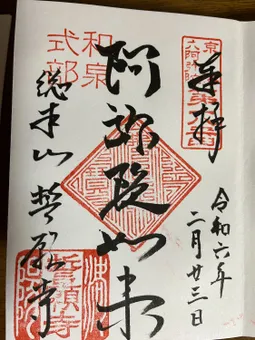 奉拝
令和六年
二月廿三日
阿弥陀如来
和泉
式部
総本山 誓願寺
誓願寺